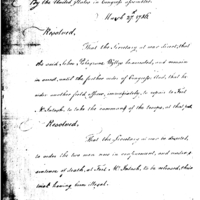 By the United States in Congress assembled
March 27 1786
Resolved,
That the Secretary at war direct, that
the said John Pilgrine Wyllys be arrested, and remain
in arrest, until the further order of Congress
order another field officer, immediately, to repair to Fort
McIntosh, to take the command of the troops, at that post
Resolved.
That the Secretary at war be directed,
to order the two men now in confinement, and under
sentence of death, at Fort McIntosh, to be released, their
trial having been illegal.